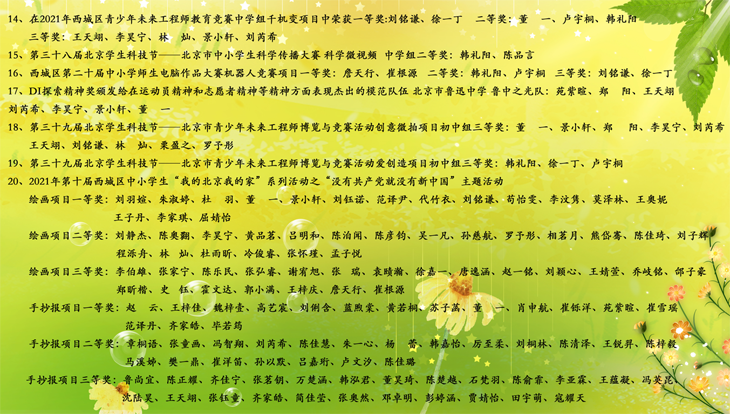 14、在2021年西城区青少年未来工程师教育竞赛中学组千机变项目中荣获一等奖:刘铭谦、徐一丁 二等奖：董 一、卢宇桐、韩礼阳
三等奖：王天翊、李昊宁、林 灿、景小轩、刘芮希
15、第三十八届北京学生科技节——北京市中小学生科学传播大赛 科学微视频 中学组二等奖：韩礼阳、陈品言
16、西城区第二十届中小学师生电脑作品大赛机器人竞赛项目一等奖：詹天行、崔根源 二等奖：韩礼阳、卢宇桐 三等奖：刘铭谦、徐一丁
17、DI探索精神奖颁发给在运动员精神和志愿者精神等精神方面表现杰出的模范队伍 北京市鲁迅中学 鲁中之光队：苑紫暄、郑 阳、王天翊
刘芮希、李昊宁、景小轩、董 一
18、第三十九届北京学生科技节——北京市青少年未来工程师博览与竞赛活动创意微拍项目初中组三等奖：董 一、景小轩、郑 阳、李昊宁、刘芮希
王天翊、刘铭谦、林 灿、栗盈之、罗予彤
19、第三十九届北京学生科技节——北京市青少年未来工程师博览与竞赛活动爱创造项目初中组三等奖：韩礼阳、徐一丁、卢宇桐
20、2021年第十届西城区中小学生“我的北京我的家”系列活动之“没有共产党就没有新中国”主题活动
绘画项目一等奖：刘羽煊、朱淑婷、杜 羽、董 一、景小轩、刘钰诺、范译尹、代竹衣、刘铭谦、苟怡雯、李汶隽、莫泽林、王奥妮
王子丹、李家琪、屈婧怡
绘画项目二等奖：刘静杰、陈奥翾、李昊宁、黄品茗、吕明和、陈泊闻、陈彦钧、吴一凡、孙慈航、罗予彤、相茗月、熊岱骞、陈佳琦、刘子辉
程添舟、林 灿、杜雨昕、冷俊睿、张怀瑾、孟子悦
绘画项目三等奖：李伯雄、张家宁、陈乐民、张弘睿、谢宥旭、张 瑞、袁晴瀚、徐嘉一、唐逸涵、赵一铭、刘颖心、王婧萱、乔岐铭、邰子豪
郑昕楷、史 钰、霍文达、郭小满、王梓庆、詹天行、崔根源
手抄报项目一等奖：赵 云、王梓佳、魏梓壹、高艺宸、刘俐含、蓝煦棠、黄若桐、苏子菡、董 一、肖中航、崔铄洋、苑紫暄、崔雪瑶
范译丹、齐家皓、毕若筠
手抄报项目二等奖：章桐语、张童画、冯智翔、刘芮希、陈佳慧、朱一心、杨 蕾、韩嘉怡、厉至柔、刘桐林、陈清泽、王锐羿、陈梓毅
马溪婷、樊一鼎、崔洋笛、孙以默、吕嘉珩、卢文汐、陈佳璐
手抄报项目三等奖：鲁尚宜、陈正耀、齐佳宁、张茗钏、万楚涵、韩泓君、董昊琦、陈楚越、石梵羽、陈俞霏、李亚霖、王蕴凝、冯英花、
沈陆昊、王天翊、张钰童、齐家皓、简佳莹、张奥然、邓卓明、彭婷涵、贾婧怡、田宇萌、寇耀天